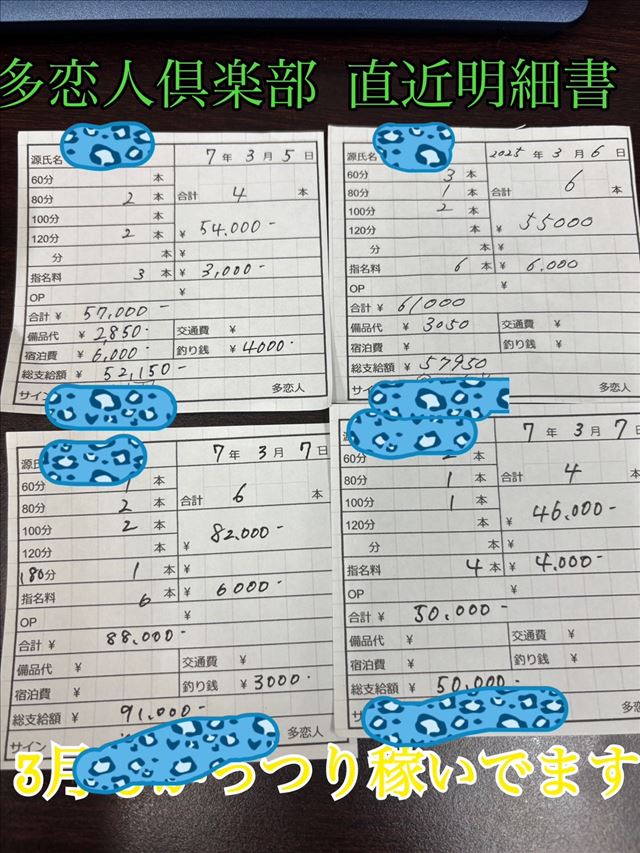 多恋人倶楽部 直近明細書
源氏名
7年 3月 5日
60分 本
80分 2 本
合計 4 本
100分 本
¥ 54,000-
120分 2 本
分 本 ¥
指名料 3 本 ¥ 3,000-
OP ¥
合計 ¥ 57,000-
備品代 ¥ 2,850- 交通費 ¥
宿泊費 ¥ 6,000- 釣り銭 ¥ 4000-
総支給額 ¥ 52,150-
サイン 多恋人
源氏名
2025年 3月 6日
60分 3 本
80分 1 本
合計 6 本
100分 2 本
¥ 55000
120分 本
分 本 ¥
指名料 6 本 ¥ 6.000
OP ¥
合計 ¥ 61000
備品代 ¥ 3050 交通費 ¥
宿泊費 ¥ 釣り銭 ¥
総支給額 ¥ 57950
サイン 多恋人
源氏
7年 3月 7日
60分 1 本
80分 2 本
合計 6 本
100分 2 本
¥ 82.000-
120分 本
180分 1 本 ¥
指名料 6 本 ¥ 6000-
OP ¥
合計 ¥ 88.000-
備品代 ¥ 交通費 ¥
宿泊費 ¥ 釣り銭 ¥ 3000-
総支給額 ¥ 91.000-
サイン 多恋人
源
7年 3月 7日
60分 本
80分 1 本
合計 4 本
100分 1 本
¥ 46.000-
120分 本
分 本 ¥
指名料 4 本 ¥ 4.000-
OP ¥
合計 ¥ 50.000-
備品代 ¥ 交通費 ¥
宿泊費 ¥ 釣り銭 ¥
総支給額 ¥ 50.000-
サイン 多恋
3月もがっつり稼いでます